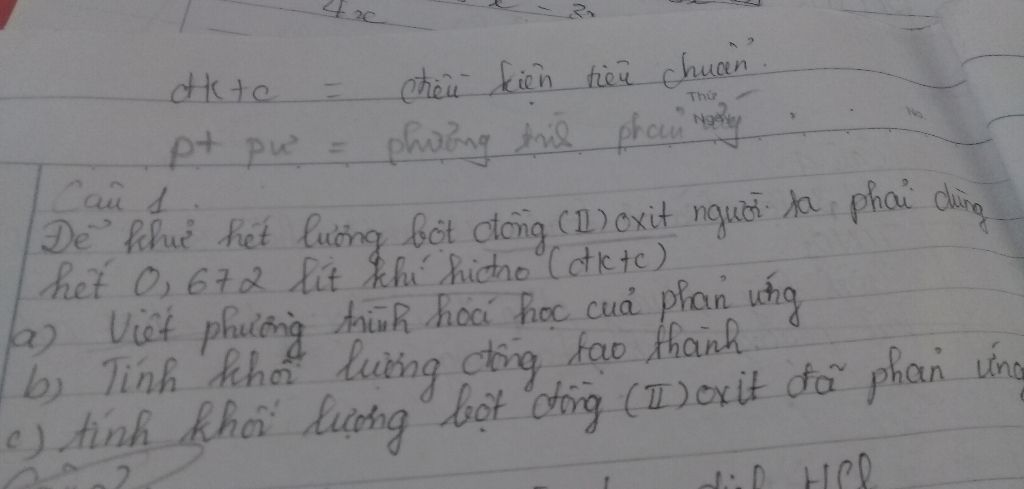 4 x
đktc = điều kiện tiêu chuẩn.
pt pư = phương phản
Thứ
Ngày
Câu 1.
Để khử hết lượng bột đồng (II) oxit người ta phải dùng
hết 0,672 lít khí hiđro (đktc)
a) Viết phương trình hóa học của phản ứng
b) Tính khối lượng đồng tạo thành
c) tính khối lượng bột đồng (II) oxit đã phản ứng
HCl